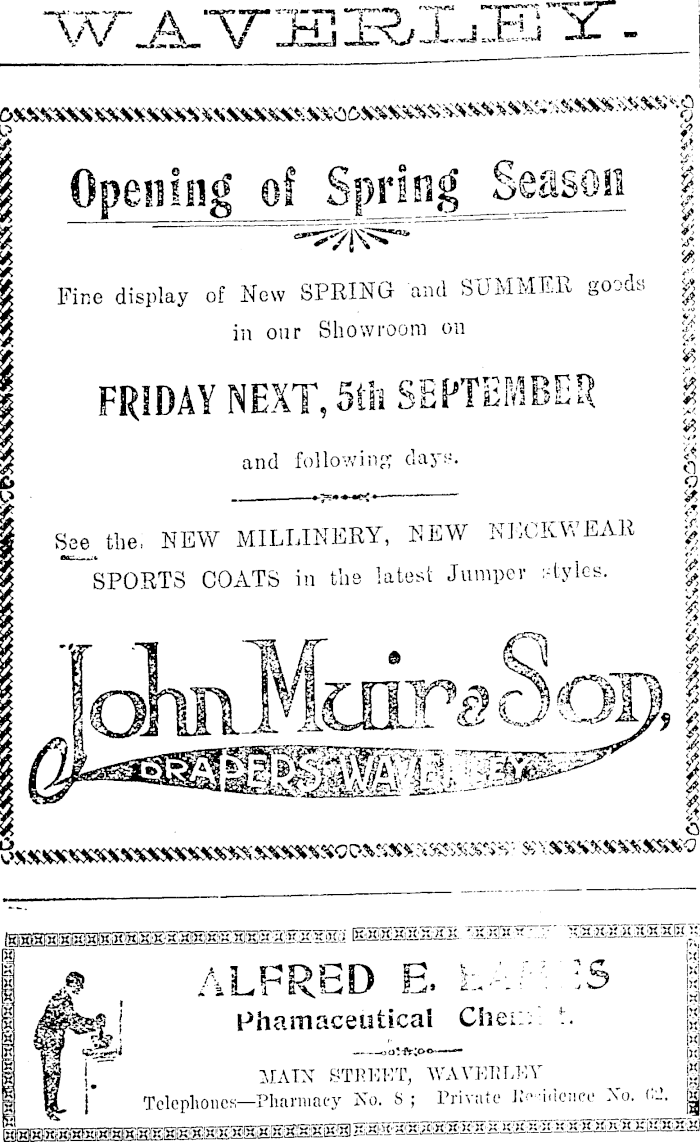 WAVERLEY.
Opening of Spring Season
Fine display of New SPRING and SUMMER goods
in our Showroom on
FRIDAY NEXT, 5th SEPTEMBER
and following days.
See the NEW MILLINERY, NEW NECKWEAR
SPORTS COATS in the latest Jumper styles.
John Muir & Son,
DRAPERS WAVERLEY
ALFRED E.
Phamaceutical Chemist.
MAIN STREET, WAVERLEY
Telephones—Pharmacy No. 8; Private Residence No. 62.